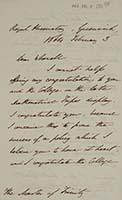 Royal Observatory, Greenwich
1864 February 3
Dear Whewell
I must hasten
offering my congratulations to you
and the College on the late
Mathematical Tripos
I congratulate you, because
I
success of a policy which I
believe you to have at heart
and I congratulate the College
The Master of Trinity